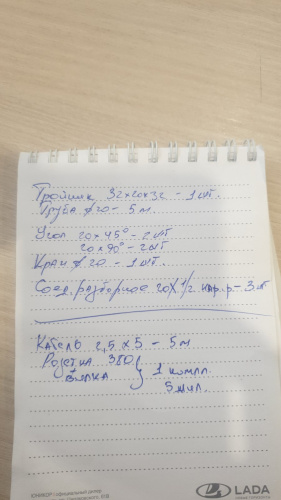 Тройник 32х20х32 - 1 шт.
Труба ⌀20 - 5 м
Угол 20 х 45° - 2 шт
20 х 90° - 2 шт
Кран ⌀ 20 - 1 шт.
Соед. разборное 20 х 1/2 нар.р - 3 шт
Кабель 2,5 х 5 - 5 м
Розетка 380
+
вилка } 1 компл.
5 жил.
LADA